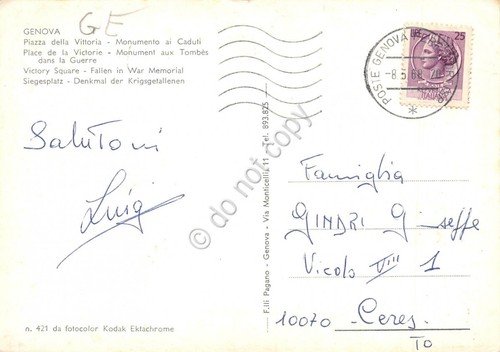 GE
GENOVA
Piazza della Vittoria - Monumento ai Caduti
Place de la Victorie - Monument aux Tombès
dans la Guerre
Victory Square - Fallen in War Memorial
Siegesplatz - Denkmal der Krigsgefallenen
SaluToni
Luigi
n. 421 da fotocolor Kodak Ektachrome
F.lli Pagano - Genova - Via Monticelli 11 - Tel. 893.825
do not copy
POSTE GENOVA
-8.5.68
25
Famiglia
GINDRI Giuseffe
Vicolo VIII 1
10070 - Ceres
TO